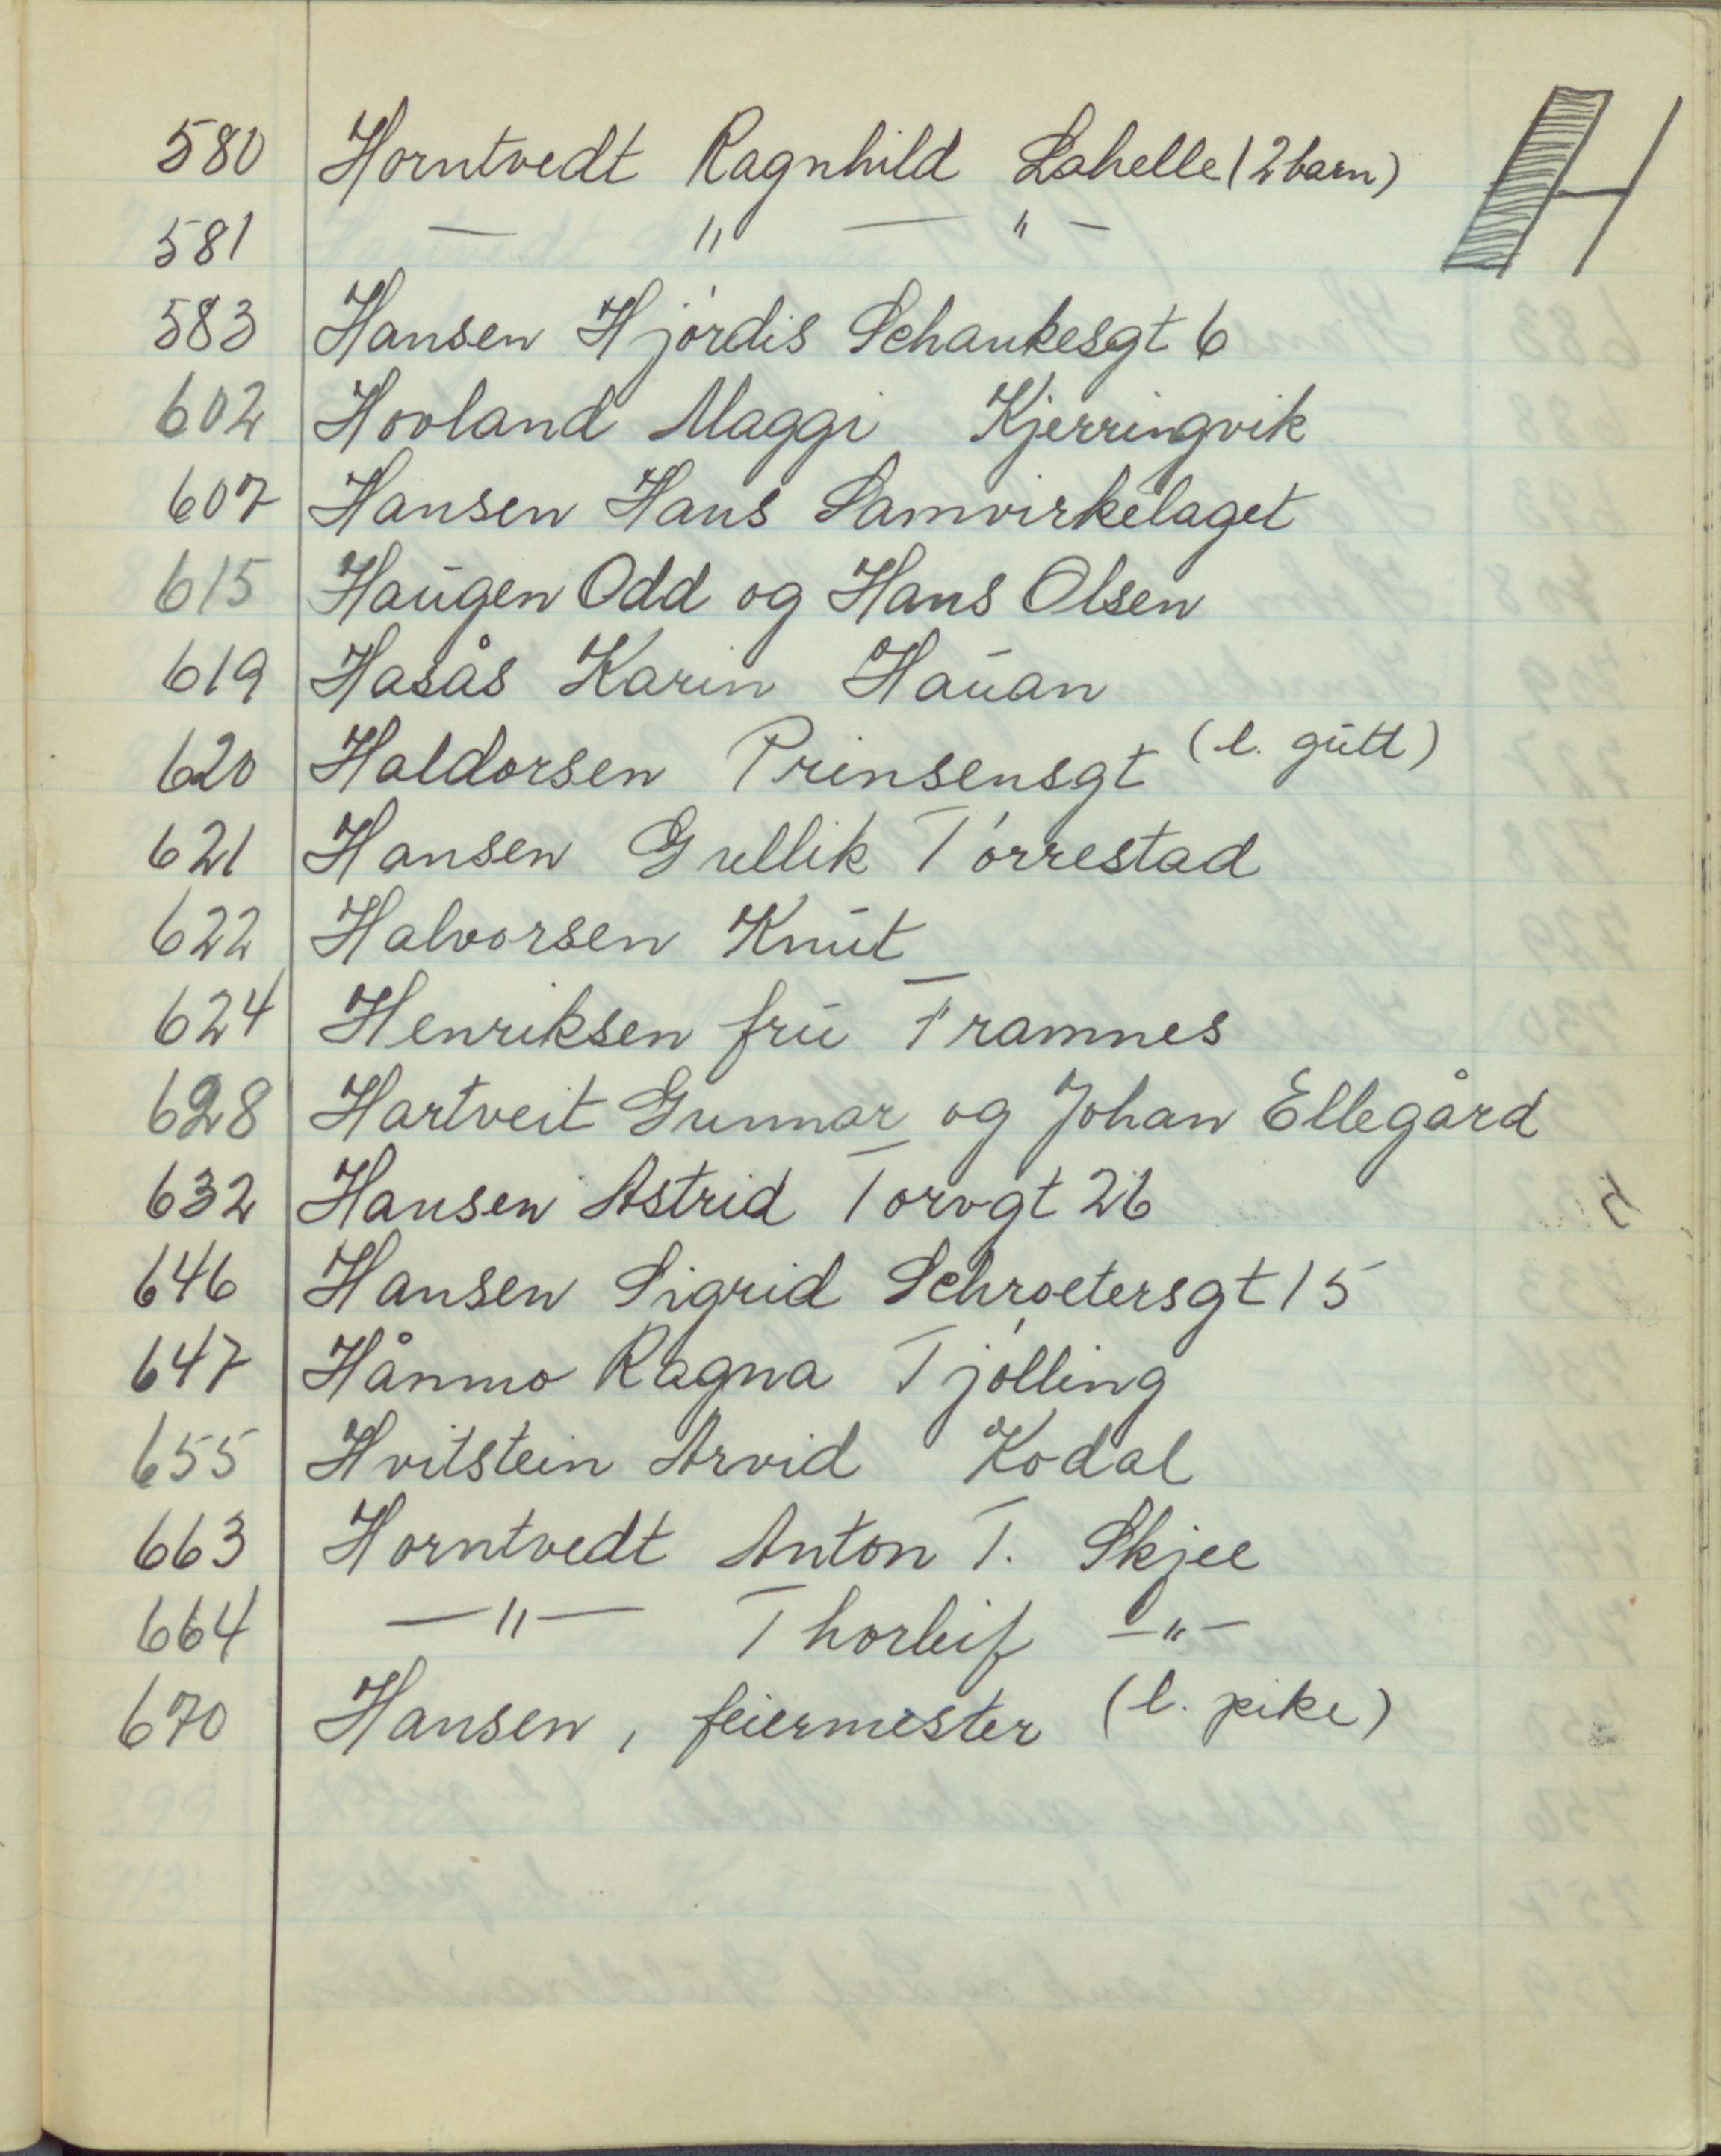 H
580 Horntvedt Ragnhild Lahelle (2 barn)
581 — " — " —
583 Hansen Hjördis Schankesgt 6
602 Hovland Maggi Kjerringvik
607 Hansen Hans Samvirkelaget
615 Haugen Odd og Hans Olsen
619 Hasås Karin Hauan
620 Haldorsen Prinsensgt (l. gutt)
621 Hansen Gullik Törrestad
622 Halvorsen Knut
624 Henriksen fru Framnes
628 Hartveit Gunnar og Johan Ellegård
632 Hansen Astrid Torvgt 26
646 Hansen Sigrid Schroetersgt 15
647 Hånmo Ragna Tjölling
655 Hvitstein Arvid Kodal
663 Horntvedt Anton T. Skjee
664 — " — Thorleif — " —
670 Hansen, feiermester (l. pike)